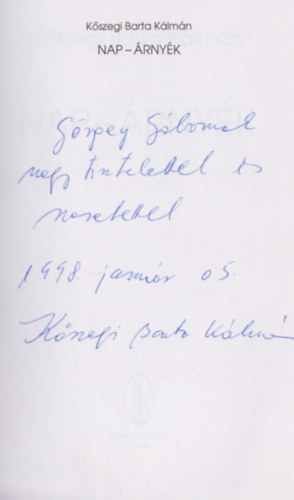 Kőszegi Barta Kálmán
NAP – ÁRNYÉK
Görgey Gábornak
nagy tisztelettel és
szeretettel
1998. január 05.
Kőszegi Barta Kálmán